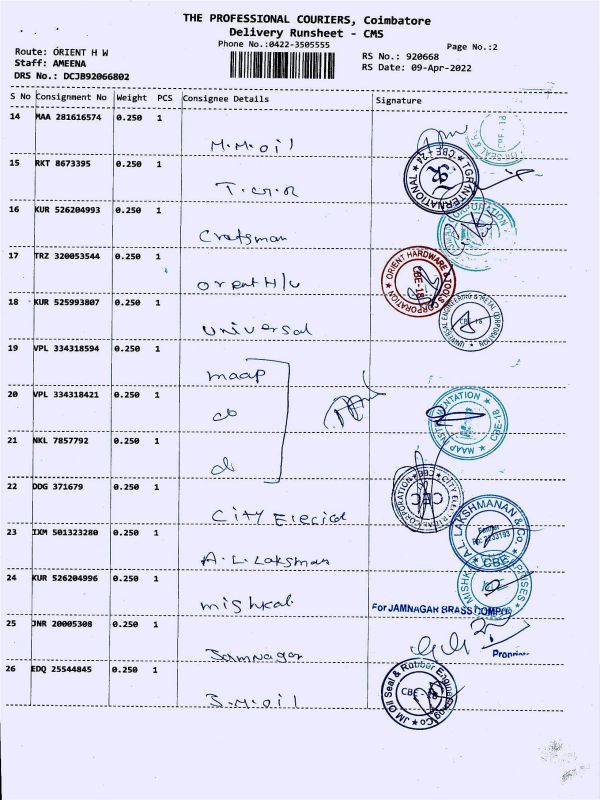 THE PROFESSIONAL COURIERS, Coimbatore
Delivery Runsheet - CMS
Phone No.:0422-3505555
Page No.:2
Route: ORIENT H W
Staff: AMEENA
DRS No.: DCJB92066802
RS No.: 920668
RS Date: 09-Apr-2022
S No Consignment No Weight PCS Consignee Details Signature
14 MAA 281616574 0.250 1
M.M.oil
15 RKT 8673395 0.250 1
T.G.R
TGR INTERNATIONAL
16 KUR 526204993 0.250 1
Craftsman
17 TRZ 320053544 0.250 1
orient H/w
ORIENT HARDWARE & TOOLS CORPORATION CBE-18
18 KUR 525993807 0.250 1
universal
UNIVERSAL ENGINEERING & METAL CORPORATION CBE-18
19 VPL 334318594 0.250 1
maap
20 VPL 334318421 0.250 1
do
MAAP INSTRUMENTATION CBE-18
21 NKL 7857792 0.250 1
d
22 DDG 371679 0.250 1
City Elecical
CEC
23 IXM 501323280 0.250 1
A.L.Laksman
A.L. LAKSHMANAN & Co. CBE
24 KUR 526204996 0.250 1
mishkal
For JAMNAGAR BRASS
25 JNR 20005308 0.250 1
Jamnagar
26 EDQ 25544845 0.250 1
J.M.oil
JM Oil Seal & Rubber Engineering Co CBE-18